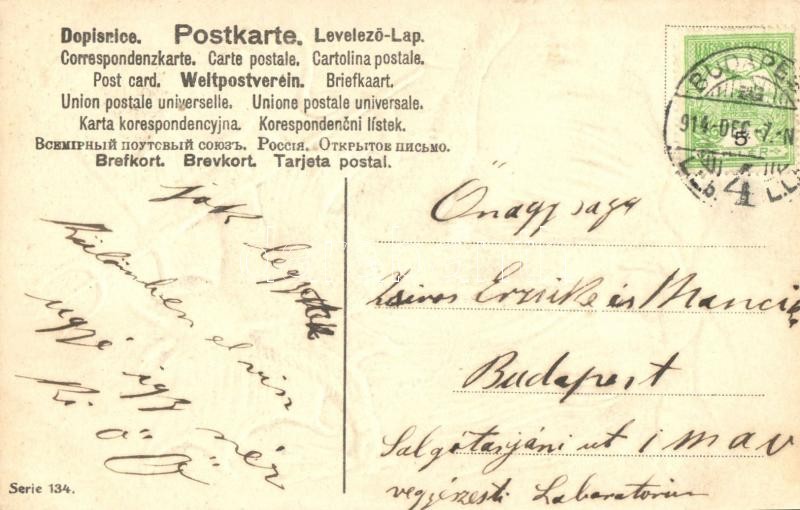 Dopisnice. Postkarte. Levelező-Lap.
Correspondenzkarte. Carte postale. Cartolina postale.
Post card. Weltpostverein. Briefkaart.
Union postale universelle. Unione postale universale.
Karta korespondencyjna. Korespondenční lístek.
Всемірный поутсовый союзъ. Россія. Открытое письмо.
Brefkort. Brevkort. Tarjeta postal.
BUDAPES
914 DEC. -7.-N
5
4
jók legyetek
Különben elvisz
ugye így
Őnagysága
Zsivos Erzsike és Mancik
Budapest
Salgótarjáni út 1 máv
vegyészeti Laboratorium
Serie 134.